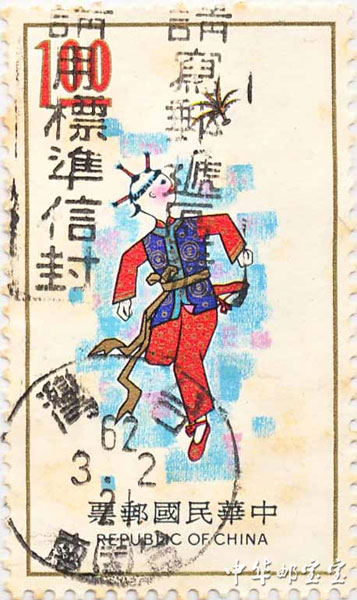 100
請寫郵遞區
請用標準信封
灣
62
3.2
21
中華民國郵票
REPUBLIC OF CHINA
中华邮宝宝